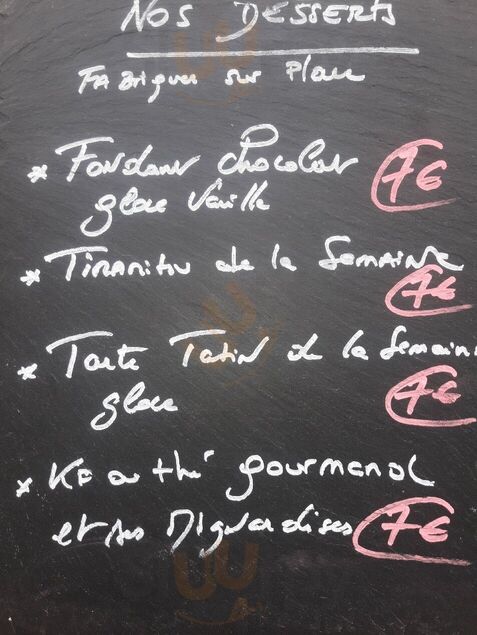 NOS DESSERTS
Fabriqués sur Place
* Fondant chocolat 7€
glace vanille
* Tiramisu de la Semaine
7€
* Tarte Tatin de la Semaine
glace 7€
* KF ou thé gourmand
et ses Mignardises 7€